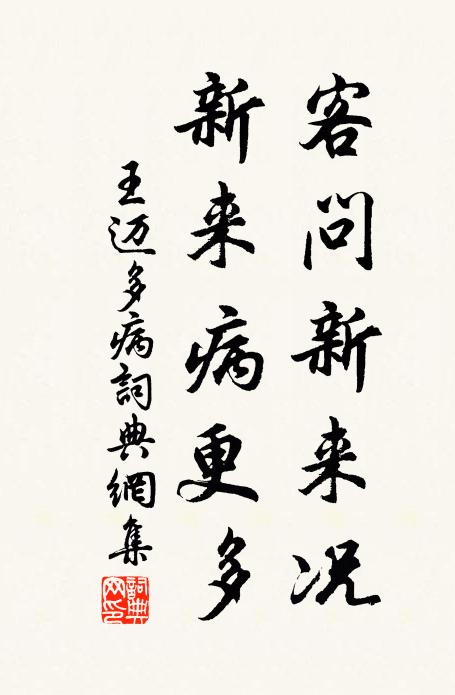 客问新来况
新来病更多
王迈多病詞典網集
詞典网印